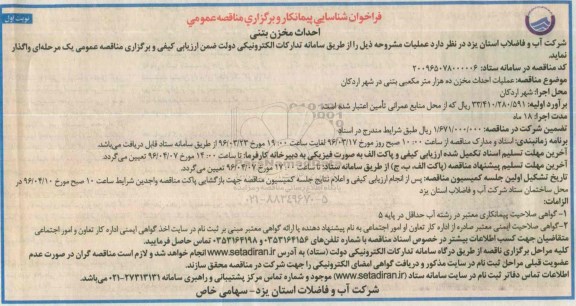 نوبت اول
فراخوان شناسایی پیمانکار و برگزاری مناقصه عمومی
احداث مخزن بتنی
شرکت آب و فاضلاب استان یزد در نظر دارد عملیات مشروحه ذیل را از طریق سامانه تدارکات الکترونیکی دولت ضمن ارزیابی کیفی و برگزاری مناقصه عمومی یک مرحله‌ای واگذار
نماید.
کد مناقصه در سامانه ستاد: ۲۰۰۹۶۵۰۷۸۰۰۰۰۰۶
موضوع مناقصه: عملیات احداث مخزن ده هزار متر مکعبی بتنی در شهر اردکان
محل اجرا: شهر اردکان
برآورد اولیه: ۳۳/۴۱۰/۲۸۰/۵۹۱ ریال که از محل منابع عمرانی تأمین اعتبار شده است.
مدت اجرا: ۱۸ ماه
تضمین شرکت در مناقصه: ۱/۶۷۱/۰۰۰/۰۰۰ ریال طبق شرایط مندرج در اسناد
برنامه زمانبندی: اسناد و مدارک مناقصه از ساعت ۱۰:۰۰ صبح روز مورخ ۹۶/۰۳/۱۷ لغایت ساعت ۱۹:۰۰ مورخ ۹۶/۰۳/۲۳ از طریق سامانه ستاد قابل دریافت می‌باشد.
آخرین مهلت تسلیم اسناد تکمیل شده ارزیابی کیفی و پاکت الف به صورت فیزیکی به دبیرخانه کارفرما: تا ساعت ۱۴:۰۰ مورخ ۹۶/۰۴/۰۷ تعیین می‌گردد.
آخرین مهلت تسلیم پیشنهاد مناقصه (پاکت الف، ب، ج) از طریق سامانه ستاد: تا ساعت ۱۹:۰۰ مورخ ۹۶/۰۴/۰۷ تعیین می‌گردد.
تاریخ تشکیل اولین جلسه کمیسیون مناقصه: پس از انجام ارزیابی کیفی و اعلام نتایج جلسه کمیسیون مناقصه جهت بازگشایی پاکت مناقصه واجدین شرایط ساعت ۱۰ صبح مورخ ۹۶/۰۴/۱۰ در
محل ساختمان ستاد شرکت آب و فاضلاب استان یزد
الزامات:
۱- گواهی صلاحیت پیمانکاری معتبر در رشته آب حداقل در پایه ۵
۲- گواهی صلاحیت ایمنی معتبر صادره از اداره کار تعاون و امور اجتماعی به نام پیشنهاد دهنده یا ارائه گواهی معتبر مبنی بر ثبت نام در سایت اخذ گواهی ایمنی اداره کار تعاون و امور اجتماعی
متقاضیان جهت کسب اطلاعات بیشتر در خصوص اسناد مناقصه با شماره تلفن‌های ۰۳۵۳۱۶۴۱۵۶ و ۰۳۵۳۱۶۴۱۹۸ تماس حاصل فرمایید.
کلیه مراحل برگزاری مناقصه از طریق درگاه سامانه تدارکات الکترونیکی دولت (ستاد) به آدرس www.setadiran.ir انجام خواهد شد و لازم است مناقصه گران در صورت عدم
عضویت قبلی مراحل ثبت نام در سایت مذکور و دریافت گواهی امضای الکترونیکی را جهت شرکت در مناقصه محقق سازند.
اطلاعات تماس دفاتر ثبت نام در سایت سامانه ستاد (www.setadiran.ir) موجود و شماره تماس مرکز پشتیبانی و راهبری سامانه ۲۷۳۱۳۱۳۱-۰۲۱ می‌باشد.
شرکت آب و فاضلاب استان یزد- سهامی خاص